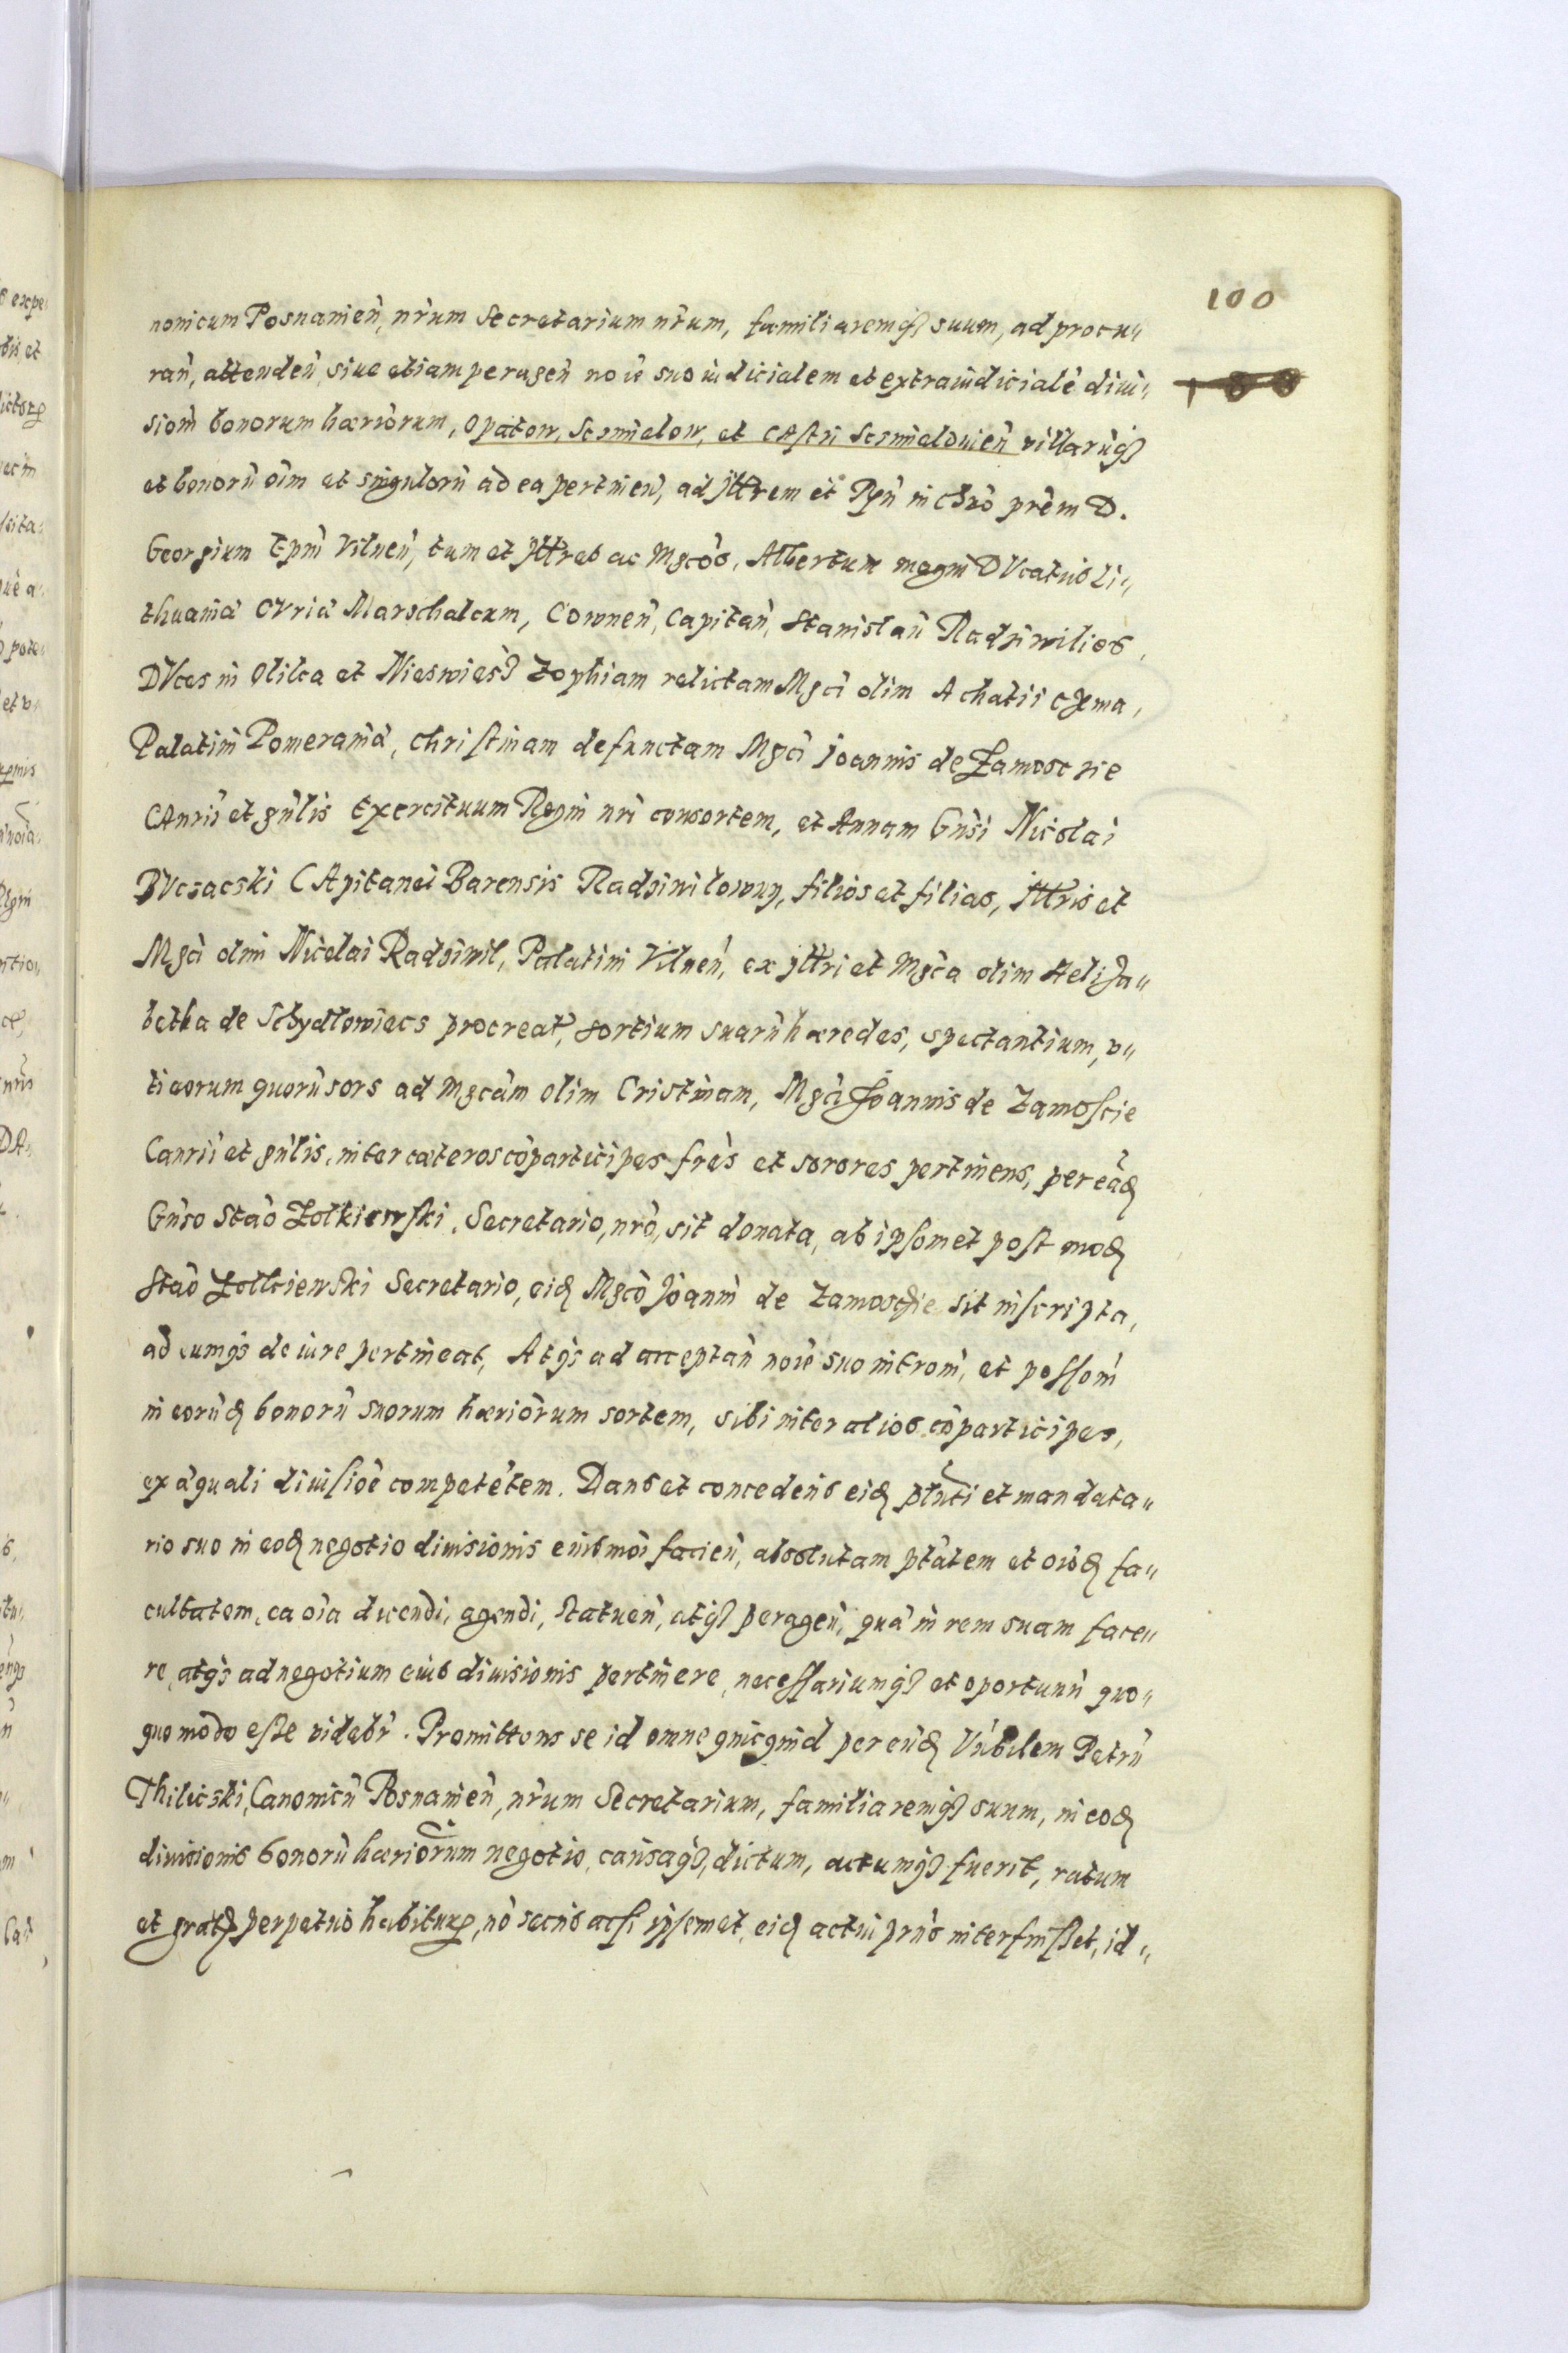 100
nonicum Posnanień, nr̃um Secretarium nr̃um, familiaremqȝ suum, ad procu„
rań, attendeń, siue etiam perageń noïe suo iudicialem et extraiudicialẽ diui„
sioñ bonorum hæriorum, Opatow, Scsmielow, et CAstri Scsmielouień villarũqȝ
et bonorũ oĩm et singulorũ ad ea pertineń, ad Jllr̃em et Rṽn in chrõ prẽm D.
Georgium Epm̃ Vilneń, tum et Jllres ac Mgcõs, Albertum magni DVcatus Li„
thuaniæ CVriæ Marschalcum, Cownen̄, Capitań, Stanislaũ Radziwilios,
DVces in Olika et Nieswiesȝ Zophiam relictam Mgci olim Achatii Czema,
Palatini Pomeraniæ, Christinam defunctam Mgci Joannis de Zamosczie
CAnrii et gńlis Exercituum Regni nr̃i consortem, et Annam Gńsi Nicolai
BVcsacski CApitanei Barensis Radziwilowny, filios et filias, Jllris et
Mgci olim Nicolai Radziwil, Palatini Vilneń, ex Jllri et Mgca olim Heliza„
betha de Schydlowiecs procreat, sortium suarũ hæredes, spectantium, v„
ti eorum quorũ sors ad Mgcãm olim Cristinam, Mgci Joannis de Zamoscie
Canrii et gńlis, inter cæteros cõparticipes frẽs et sorores pertinens, per eãd
Gńso Stão Zolkiewski, Secretario, nrõ, sit donata, ab ipsomet post mod
Stão Zolkiewski Secretario, eid Mgcõ Joanni de Zamosczie sit inscripta,
ad eumqȝ de iure pertineat, Atqȝ ad acceptań noïe suo introm̃, et possom̃
in eorũd bonorũ suorum hæriorum sortem, sibi inter alios cõparticipes,
ex æquali diuisiõe competẽtem. Dans et concedens eid plñti et mandata„
rio suo in eod negotio diuisionis eiusmõi facień, absolutam ptãtem et oïod fa„
cultatem, ea oïa dicendi, agendi, statueń, atqȝ perageń, quæ in rem suam face„
re, atqȝ ad negotium eius diuisionis pertinere, necessariumqȝ et oportunũ quo„
quo modo esse videbr̃. Promittens se id omne quicquid per eũd Vńbilem Petrũ
Thilicski, Canonicũ Posnanień, nr̃um Secretarium, familiaremqȝ suum, in eod
diuisionis bonorũ hæriorum negotio, causaqȝ, dictum, actumqȝ fuerit, ratum
et gratũ perpetuo habiturũ, nõ secus acsi ipsemet, eid actui prńs interfuisset, id„